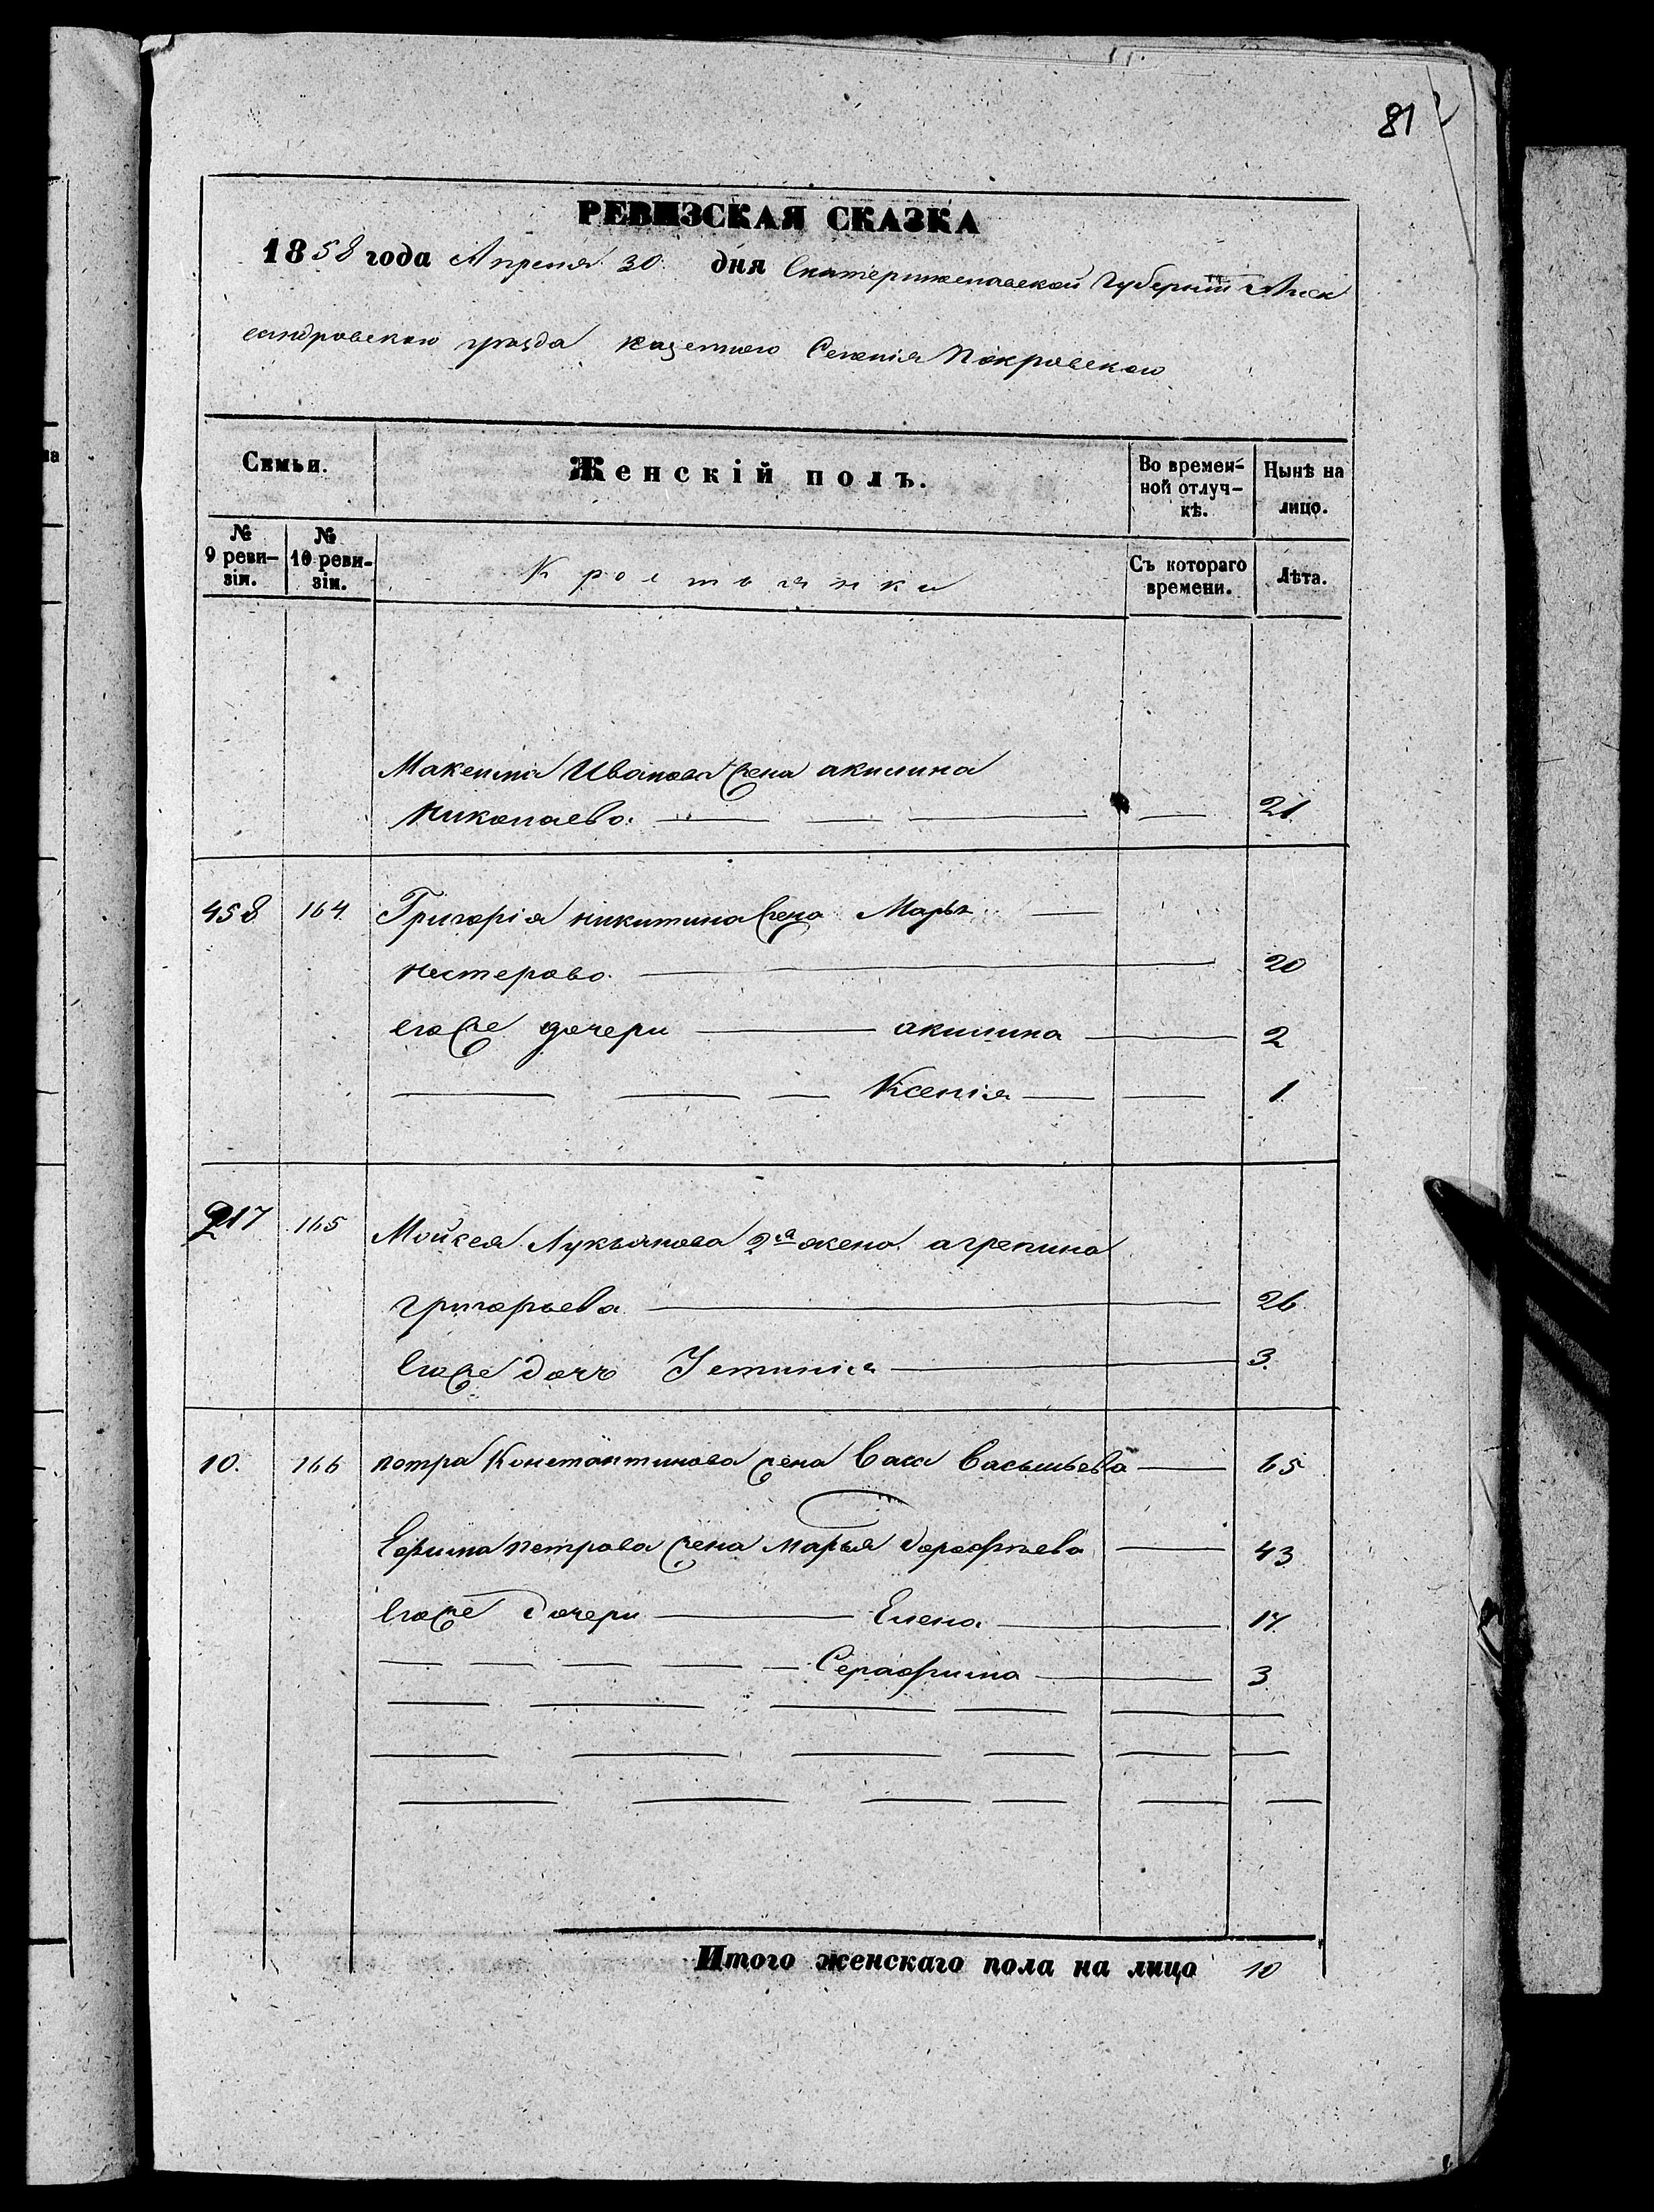 81
РЕВИЗСКАЯ СКАЗКА
1858 года Апреля 30 дня Екатеринославской Губернии Алек
сандровского уезда казенного Селенія Покровского
Семьи.
Женскій полъ.
Во времен-
ной отлуч-
кѣ.
Нынѣ на
лицо.
№
9 реви-
зіи.
№
10 реви-
зіи.
Крестьянки
Съ котораго
времени.
Лѣта.
Максима Иванова жена акилина
Николаева 21
458 164 Григорія никитина жена Марья
нестерова 20
егоже дочери акилина 2
Ксенія 1
217 165 Мойсея Лукьянова 2я жена агрепина
григорьева 26
Егоже дочь Устинія 3
10. 166 петра Константинова жена Васильева 65
Ефима петрова жена марья дорофѣева 43
Егоже дочери Елена 17
Серафима 3
Итого женскаго пола на лицо 10